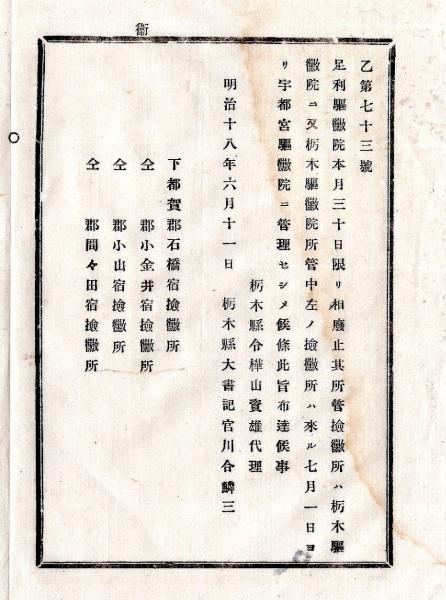 衛
乙第七十三號
足利驅黴院本月三十日限リ相廢止其所管撿黴所ハ栃木驅
黴院ニ又栃木驅黴院所管中左ノ撿黴所ハ來ル七月一日ヨ
リ宇都宮驅黴院ニ管理セシメ候條此旨布達候事
栃木縣令樺山資雄代理
明治十八年六月十一日　栃木縣大書記官川合鱗三
下都賀郡石橋宿撿黴所
仝　郡小金井宿撿黴所
仝　郡小山宿撿黴所
仝　郡間々田宿撿黴所